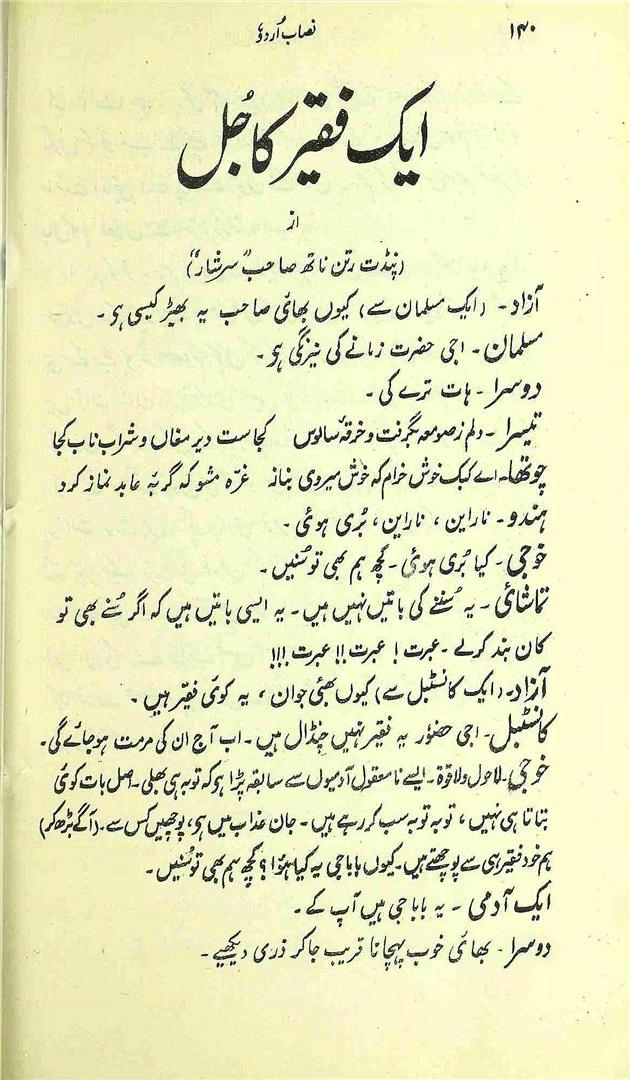 ۱۴۰ نصاب اُردو
ایک فقیر کا جُل
از
(پنڈت رتن ناتھ صاحب "سرشار")
آزاد۔ (ایک مسلمان سے) کیوں بھائی صاحب یہ بھیڑ کیسی ہو۔
مسلمان۔ اجی حضرت زمانے کی نیرنگی ہو۔
دوسرا۔ ہات ترے کی۔
تیسرا۔ دلم ز صومعہ بگرفت و خرقۂ سالوس کجاست دیر مغاں و شراب ناب کجا
چوتھا۔ اے کبک خوش خرام کہ خوش میروی بناز غرّہ مشو کہ گربۂ عابد نماز کرد
ہندو۔ ناراین، ناراین، بُری ہوئی۔
خوجی۔ کیا بُری ہوئی۔ کچھ ہم بھی تو سُنیں۔
تماشائی۔ یہ سُننے کی باتیں نہیں ہیں۔ یہ ایسی باتیں ہیں کہ اگر سُنے بھی تو
کان بند کرلے۔ عبرت! عبرت!! عبرت!!!
آزاد۔ (ایک کانسٹبل سے) کیوں بھئی جوان، یہ کوئی فقیر ہیں۔
کانسٹبل۔ اجی حضور یہ فقیر نہیں چنڈال ہیں۔ اب آج ان کی مرمت ہوجائے گی۔
خوجی۔ لاحول ولاقوۃ۔ ایسے نامعقول آدمیوں سے سابقہ پڑا ہو کہ توبہ ہی بھلی۔ اصل بات کوئی
بتاتا ہی نہیں، توبہ توبہ سب کر رہے ہیں۔ جان عذاب میں ہو، پوچھیں کس سے۔ (آگے بڑھ کر)
ہم خود فقیر ہی سے پوچھتے ہیں۔ کیوں باباجی یہ کیا ہؤا؟ کچھ ہم بھی تو سُنیں۔
ایک آدمی۔ یہ باباجی ہیں آپ کے۔
دوسرا۔ بھائی خوب پہچانا قریب جاکر ذری دیکھیے۔